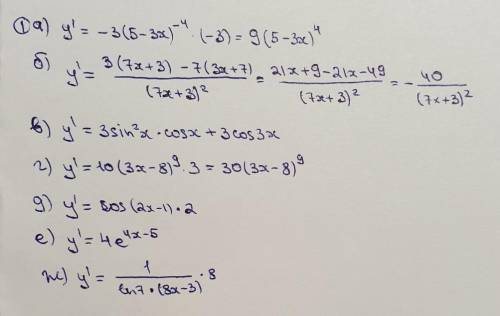 ① а) y' = -3(5-3x)^{-4} · (-3) = 9(5-3x)^4
б) y' = \frac{3(7x+3) - 7(3x+7)}{(7x+3)^2} = \frac{21x+9-21x-49}{(7x+3)^2} = -\frac{40}{(7x+3)^2}
в) y' = 3sin²x · cosx + 3cos3x
г) y' = 10(3x-8)^9 · 3 = 30(3x-8)^9
д) y' = cos(2x-1) · 2
е) y' = 4e^{4x-5}
ж) y' = \frac{1}{ln7 · (8x-3)} · 8